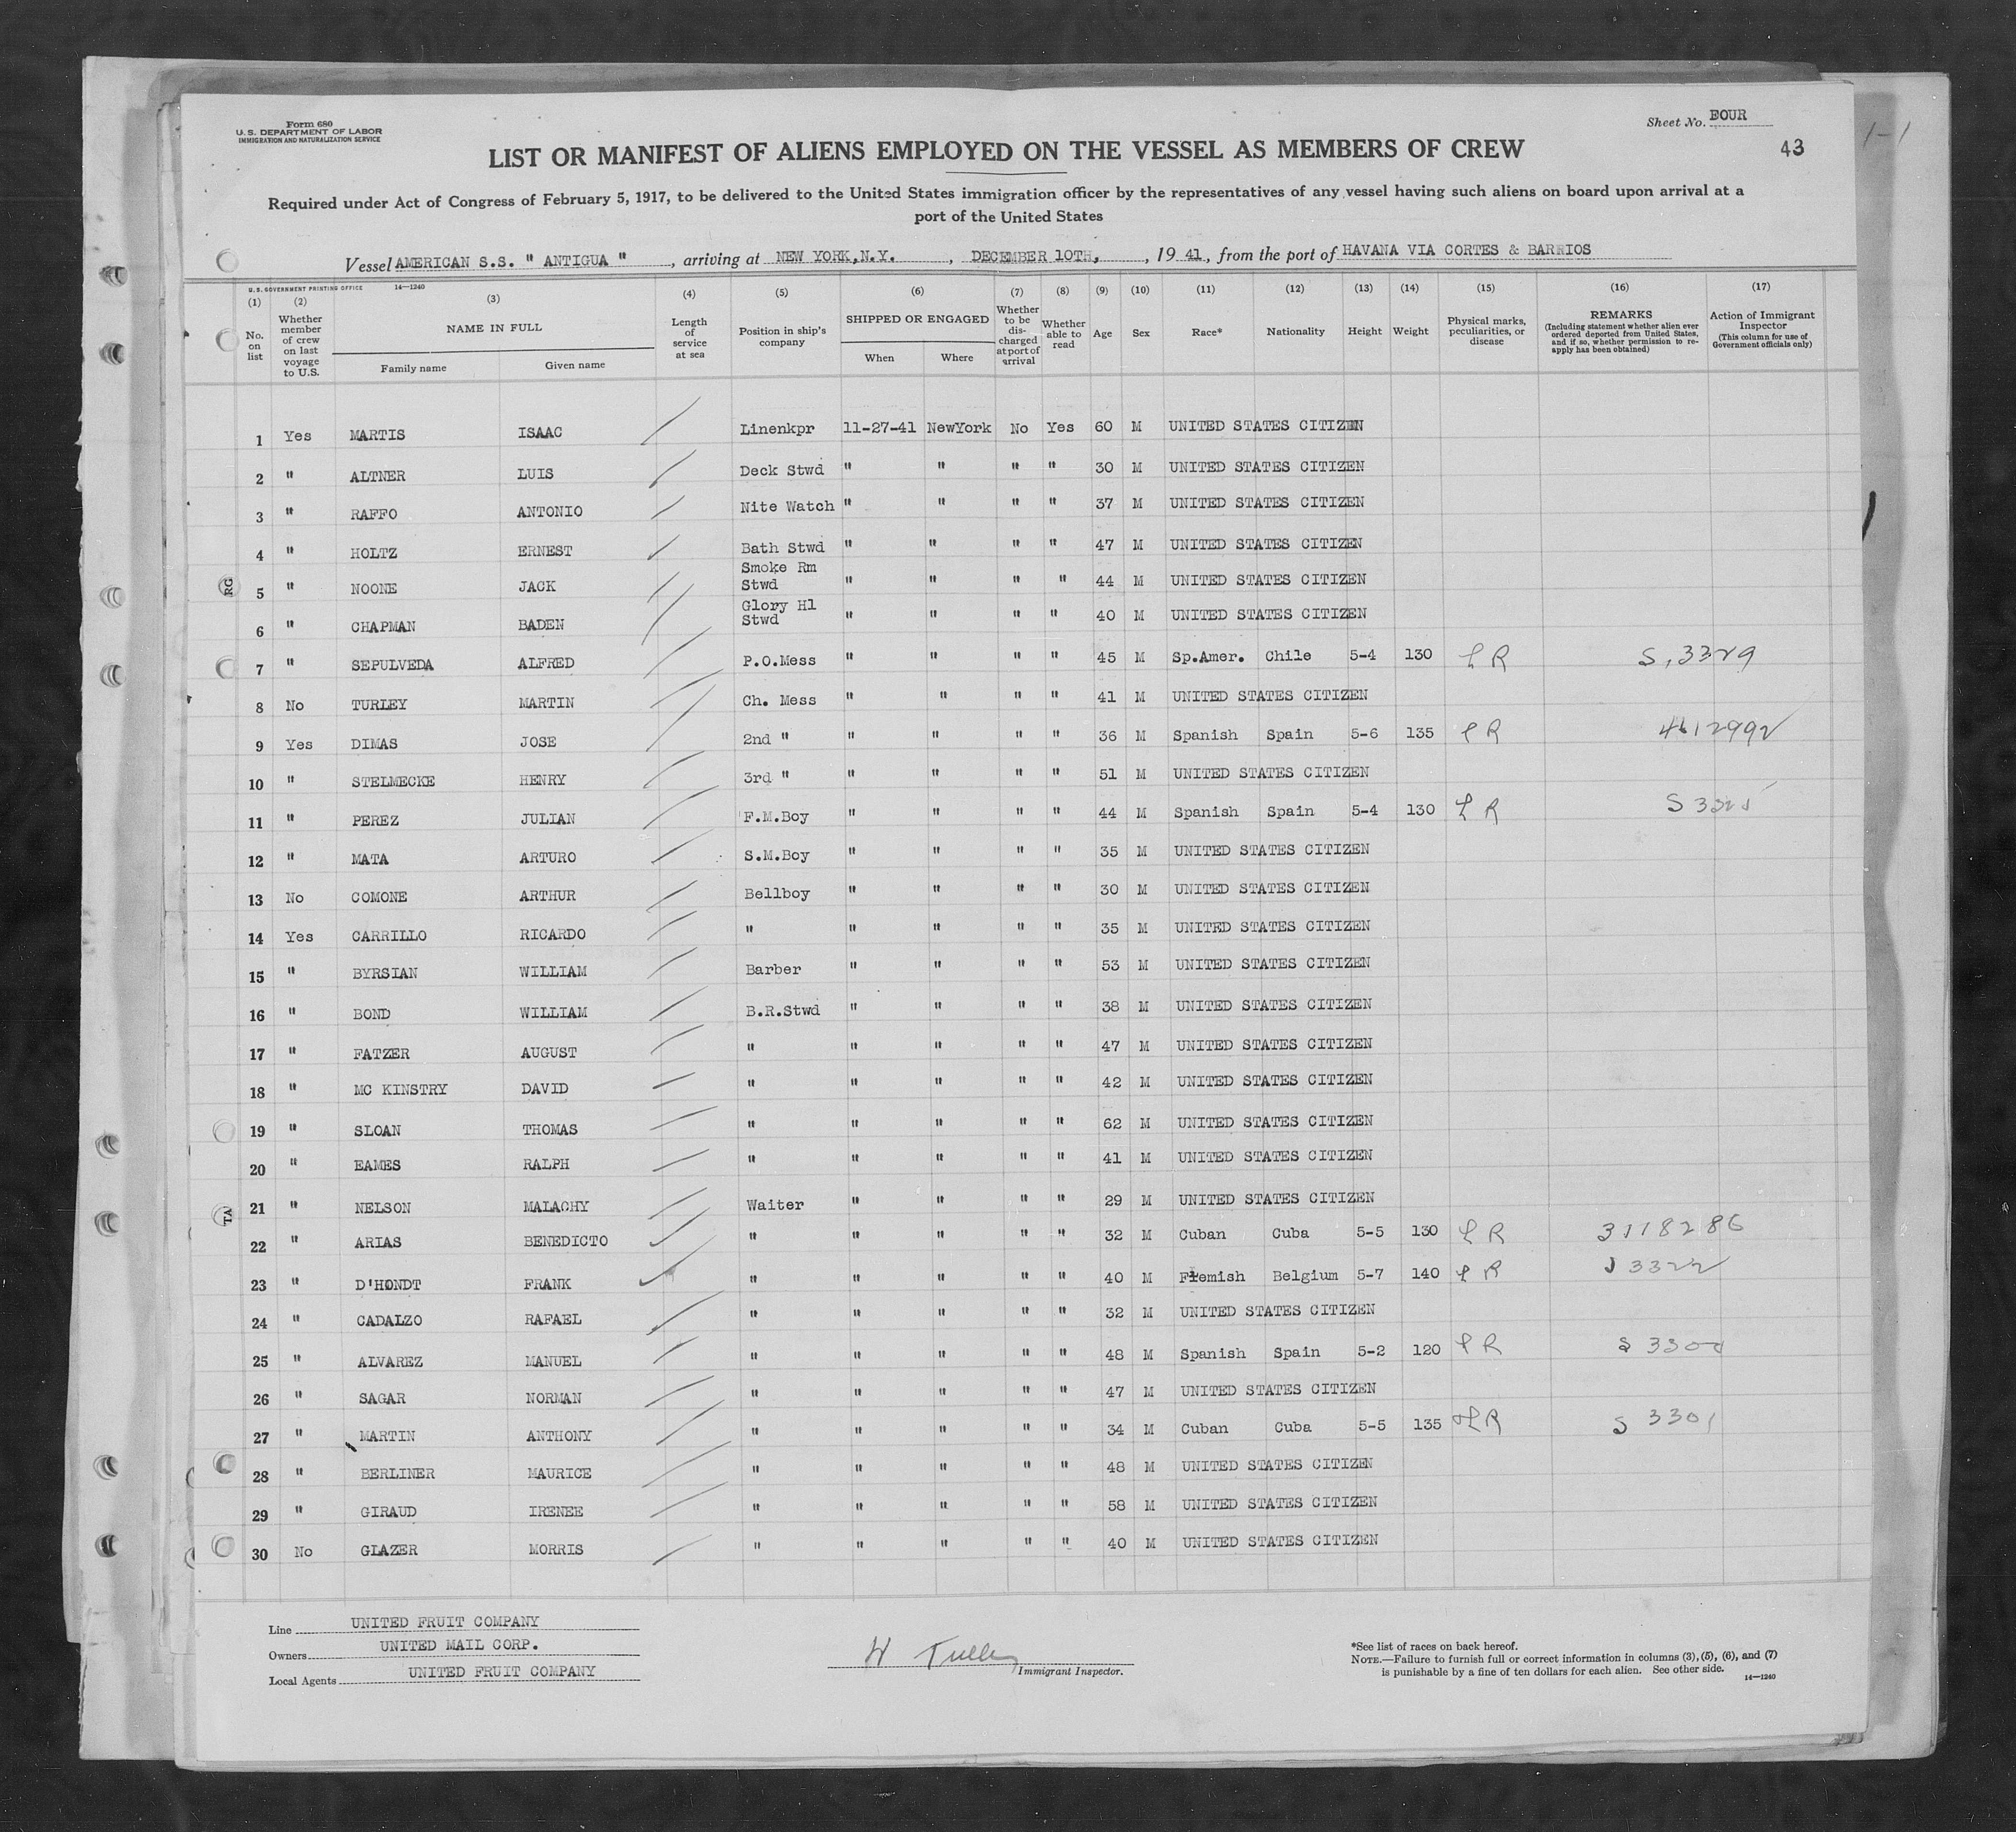 Form 680
U. S. DEPARTMENT OF LABOR
IMMIGRATION AND NATURALIZATION SERVICE
Sheet No. FOUR
43
1-1
LIST OR MANIFEST OF ALIENS EMPLOYED ON THE VESSEL AS MEMBERS OF CREW
Required under Act of Congress of February 5, 1917, to be delivered to the United States immigration officer by the representatives of any vessel having such aliens on board upon arrival at a
port of the United States
Vessel AMERICAN S.S. " ANTIGUA " , arriving at NEW YORK,N.Y. , DECEMBER 10TH, , 19 41, from the port of HAVANA VIA CORTES & BARRIOS
U. S. GOVERNMENT PRINTING OFFICE 14—1240
(1) No. on list
(2) Whether member of crew on last voyage to U.S.
(3) NAME IN FULL Family name Given name
(4) Length of service at sea
(5) Position in ship's company
(6) SHIPPED OR ENGAGED When Where
(7) Whether to be discharged at port of arrival
(8) Whether able to read
(9) Age
(10) Sex
(11) Race*
(12) Nationality
(13) Height
(14) Weight
(15) Physical marks, peculiarities, or disease
(16) REMARKS (Including statement whether alien ever ordered deported from United States, and if so, whether permission to reapply has been obtained)
(17) Action of Immigrant Inspector (This column for use of Government officials only)
1 Yes MARTIS ISAAC Linenkpr 11-27-41 NewYork No Yes 60 M UNITED STATES CITIZEN
2 " ALTNER LUIS Deck Stwd " " " " 30 M UNITED STATES CITIZEN
3 " RAFFO ANTONIO Nite Watch " " " " 37 M UNITED STATES CITIZEN
4 " HOLTZ ERNEST Bath Stwd " " " " 47 M UNITED STATES CITIZEN
RG 5 " NOONE JACK Smoke Rm Stwd " " " " 44 M UNITED STATES CITIZEN
6 " CHAPMAN BADEN Glory Hl Stwd " " " " 40 M UNITED STATES CITIZEN
7 " SEPULVEDA ALFRED P.O.Mess " " " " 45 M Sp.Amer. Chile 5-4 130 LR S,3329
8 No TURLEY MARTIN Ch. Mess " " " " 41 M UNITED STATES CITIZEN
9 Yes DIMAS JOSE 2nd " " " " " 36 M Spanish Spain 5-6 135 LR 4612992
10 " STELMECKE HENRY 3rd " " " " " 51 M UNITED STATES CITIZEN
11 " PEREZ JULIAN F.M.Boy " " " " 44 M Spanish Spain 5-4 130 LR S 3325
12 " MATA ARTURO S.M.Boy " " " " 35 M UNITED STATES CITIZEN
13 No COMONE ARTHUR Bellboy " " " " 30 M UNITED STATES CITIZEN
14 Yes CARRILLO RICARDO " " " " " 35 M UNITED STATES CITIZEN
15 " BYRSIAN WILLIAM Barber " " " " 53 M UNITED STATES CITIZEN
16 " BOND WILLIAM B.R.Stwd " " " " 38 M UNITED STATES CITIZEN
17 " FATZER AUGUST " " " " " 47 M UNITED STATES CITIZEN
18 " MC KINSTRY DAVID " " " " " 42 M UNITED STATES CITIZEN
19 " SLOAN THOMAS " " " " " 62 M UNITED STATES CITIZEN
20 " EAMES RALPH " " " " " 41 M UNITED STATES CITIZEN
TA 21 " NELSON MALACHY Waiter " " " " 29 M UNITED STATES CITIZEN
22 " ARIAS BENEDICTO " " " " " 32 M Cuban Cuba 5-5 130 LR 3118286
23 " D'HONDT FRANK " " " " " 40 M Flemish Belgium 5-7 140 LR S 3322
24 " CADALZO RAFAEL " " " " " 32 M UNITED STATES CITIZEN
25 " ALVAREZ MANUEL " " " " " 48 M Spanish Spain 5-2 120 LR
26 " SAGAR NORMAN " " " " " 47 M UNITED STATES CITIZEN
27 " MARTIN ANTHONY " " " " " 34 M Cuban Cuba 5-5 135 LR S 3301
28 " BERLINER MAURICE " " " " " 48 M UNITED STATES CITIZEN
29 " GIRAUD IRENEE " " " " " 58 M UNITED STATES CITIZEN
30 No GLAZER MORRIS " " " " " 40 M UNITED STATES CITIZEN
Line UNITED FRUIT COMPANY
Owners UNITED MAIL CORP.
Local Agents UNITED FRUIT COMPANY
W Tulley
Immigrant Inspector.
*See list of races on back hereof.
NOTE.—Failure to furnish full or correct information in columns (3), (5), (6), and (7)
is punishable by a fine of ten dollars for each alien. See other side.
14—1240